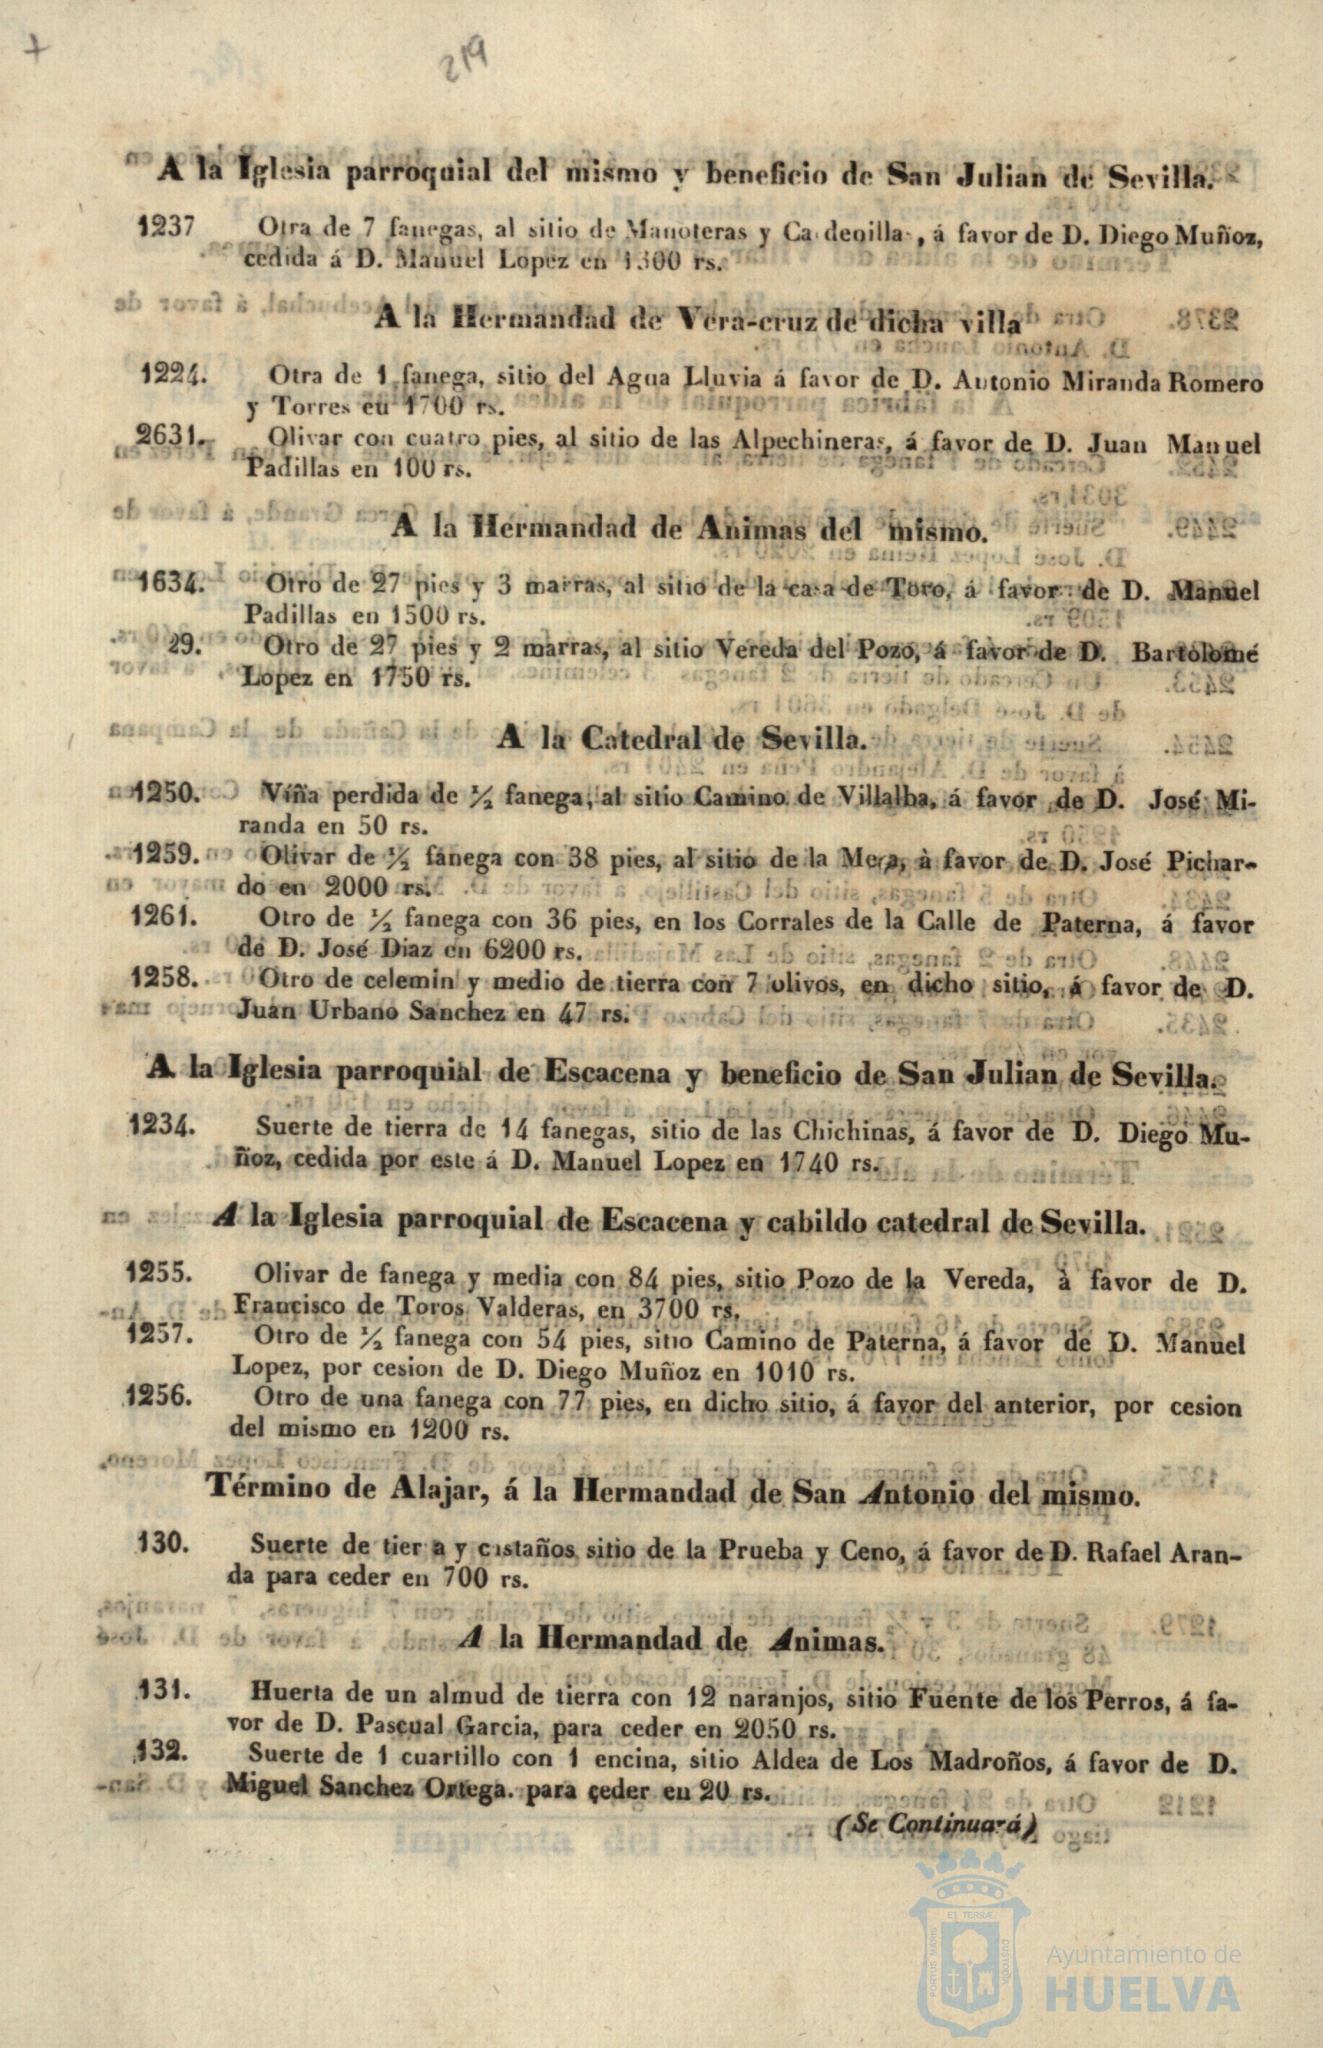 219
A la Iglesia parroquial del mismo y beneficio de San Julian de Sevilla.
1237 Otra de 7 fanegas, al sitio de Manoteras y , á favor de D. Diego Muñoz,
cedida á D. Manuel Lopez en 1300 rs.
A la Hermandad de Vera-cruz de dicha villa
1224. Otra de 1 fanega, sitio del Agua Lluvia á favor de D. Antonio Miranda Romero
y Torres en 1700 rs.
2631. Olivar con cuatro pies, al sitio de las Alpechineras, á favor de D. Juan Manuel
Padillas en 100 rs.
A la Hermandad de Animas del mismo.
1634. Otro de 27 pies y 3 marras, al sitio de la casa de Toro, á favor de D. Manuel
Padillas en 1500 rs.
29. Otro de 27 pies y 2 marras, al sitio Vereda del Pozo, á favor de D. Bartolomé
Lopez en 1750 rs.
A la Catedral de Sevilla.
1250. Viña perdida de ½ fanega, al sitio Camino de Villalba, á favor de D. José Mi-
randa en 50 rs.
1259. Olivar de ½ fanega con 38 pies, al sitio de la Mesa, à favor de D. José Pichar-
do en 2000 rs.
1261. Otro de ½ fanega con 36 pies, en los Corrales de la Calle de Paterna, á favor
de D. José Diaz en 6200 rs.
1258. Otro de celemin y medio de tierra con 7 olivos, en dicho sitio, á favor de D.
Juan Urbano Sanchez en 47 rs.
A la Iglesia parroquial de Escacena y beneficio de San Julian de Sevilla.
1234. Suerte de tierra de 14 fanegas, sitio de las Chichinas, á favor de D. Diego Mu-
ñoz, cedida por este á D. Manuel Lopez en 1740 rs.
A la Iglesia parroquial de Escacena y cabildo catedral de Sevilla.
1255. Olivar de fanega y media con 84 pies, sitio Pozo de la Vereda, à favor de D.
Francisco de Toros Valderas, en 3700 rs.
1257. Otro de ½ fanega con 54 pies, sitio Camino de Paterna, á favor de D. Manuel
Lopez, por cesion de D. Diego Muñoz en 1010 rs.
1256. Otro de una fanega con 77 pies, en dicho sitio, á favor del anterior, por cesion
del mismo en 1200 rs.
Término de Alajar, á la Hermandad de San Antonio del mismo.
130. Suerte de tier a y castaños sitio de la Prueba y Ceno, á favor de D. Rafael Aran-
da para ceder en 700 rs.
A la Hermandad de Animas.
131. Huerta de un almud de tierra con 12 naranjos, sitio Fuente de los Perros, á fa-
vor de D. Pascual Garcia, para ceder en 2050 rs.
132. Suerte de 1 cuartillo con 1 encina, sitio Aldea de Los Madroños, á favor de D.
Miguel Sanchez Ortega. para ceder en 20 rs.
(Se Continuará)
PORTUS MARIS ET TERRÆ CUSTODIA
Ayuntamiento de
HUELVA